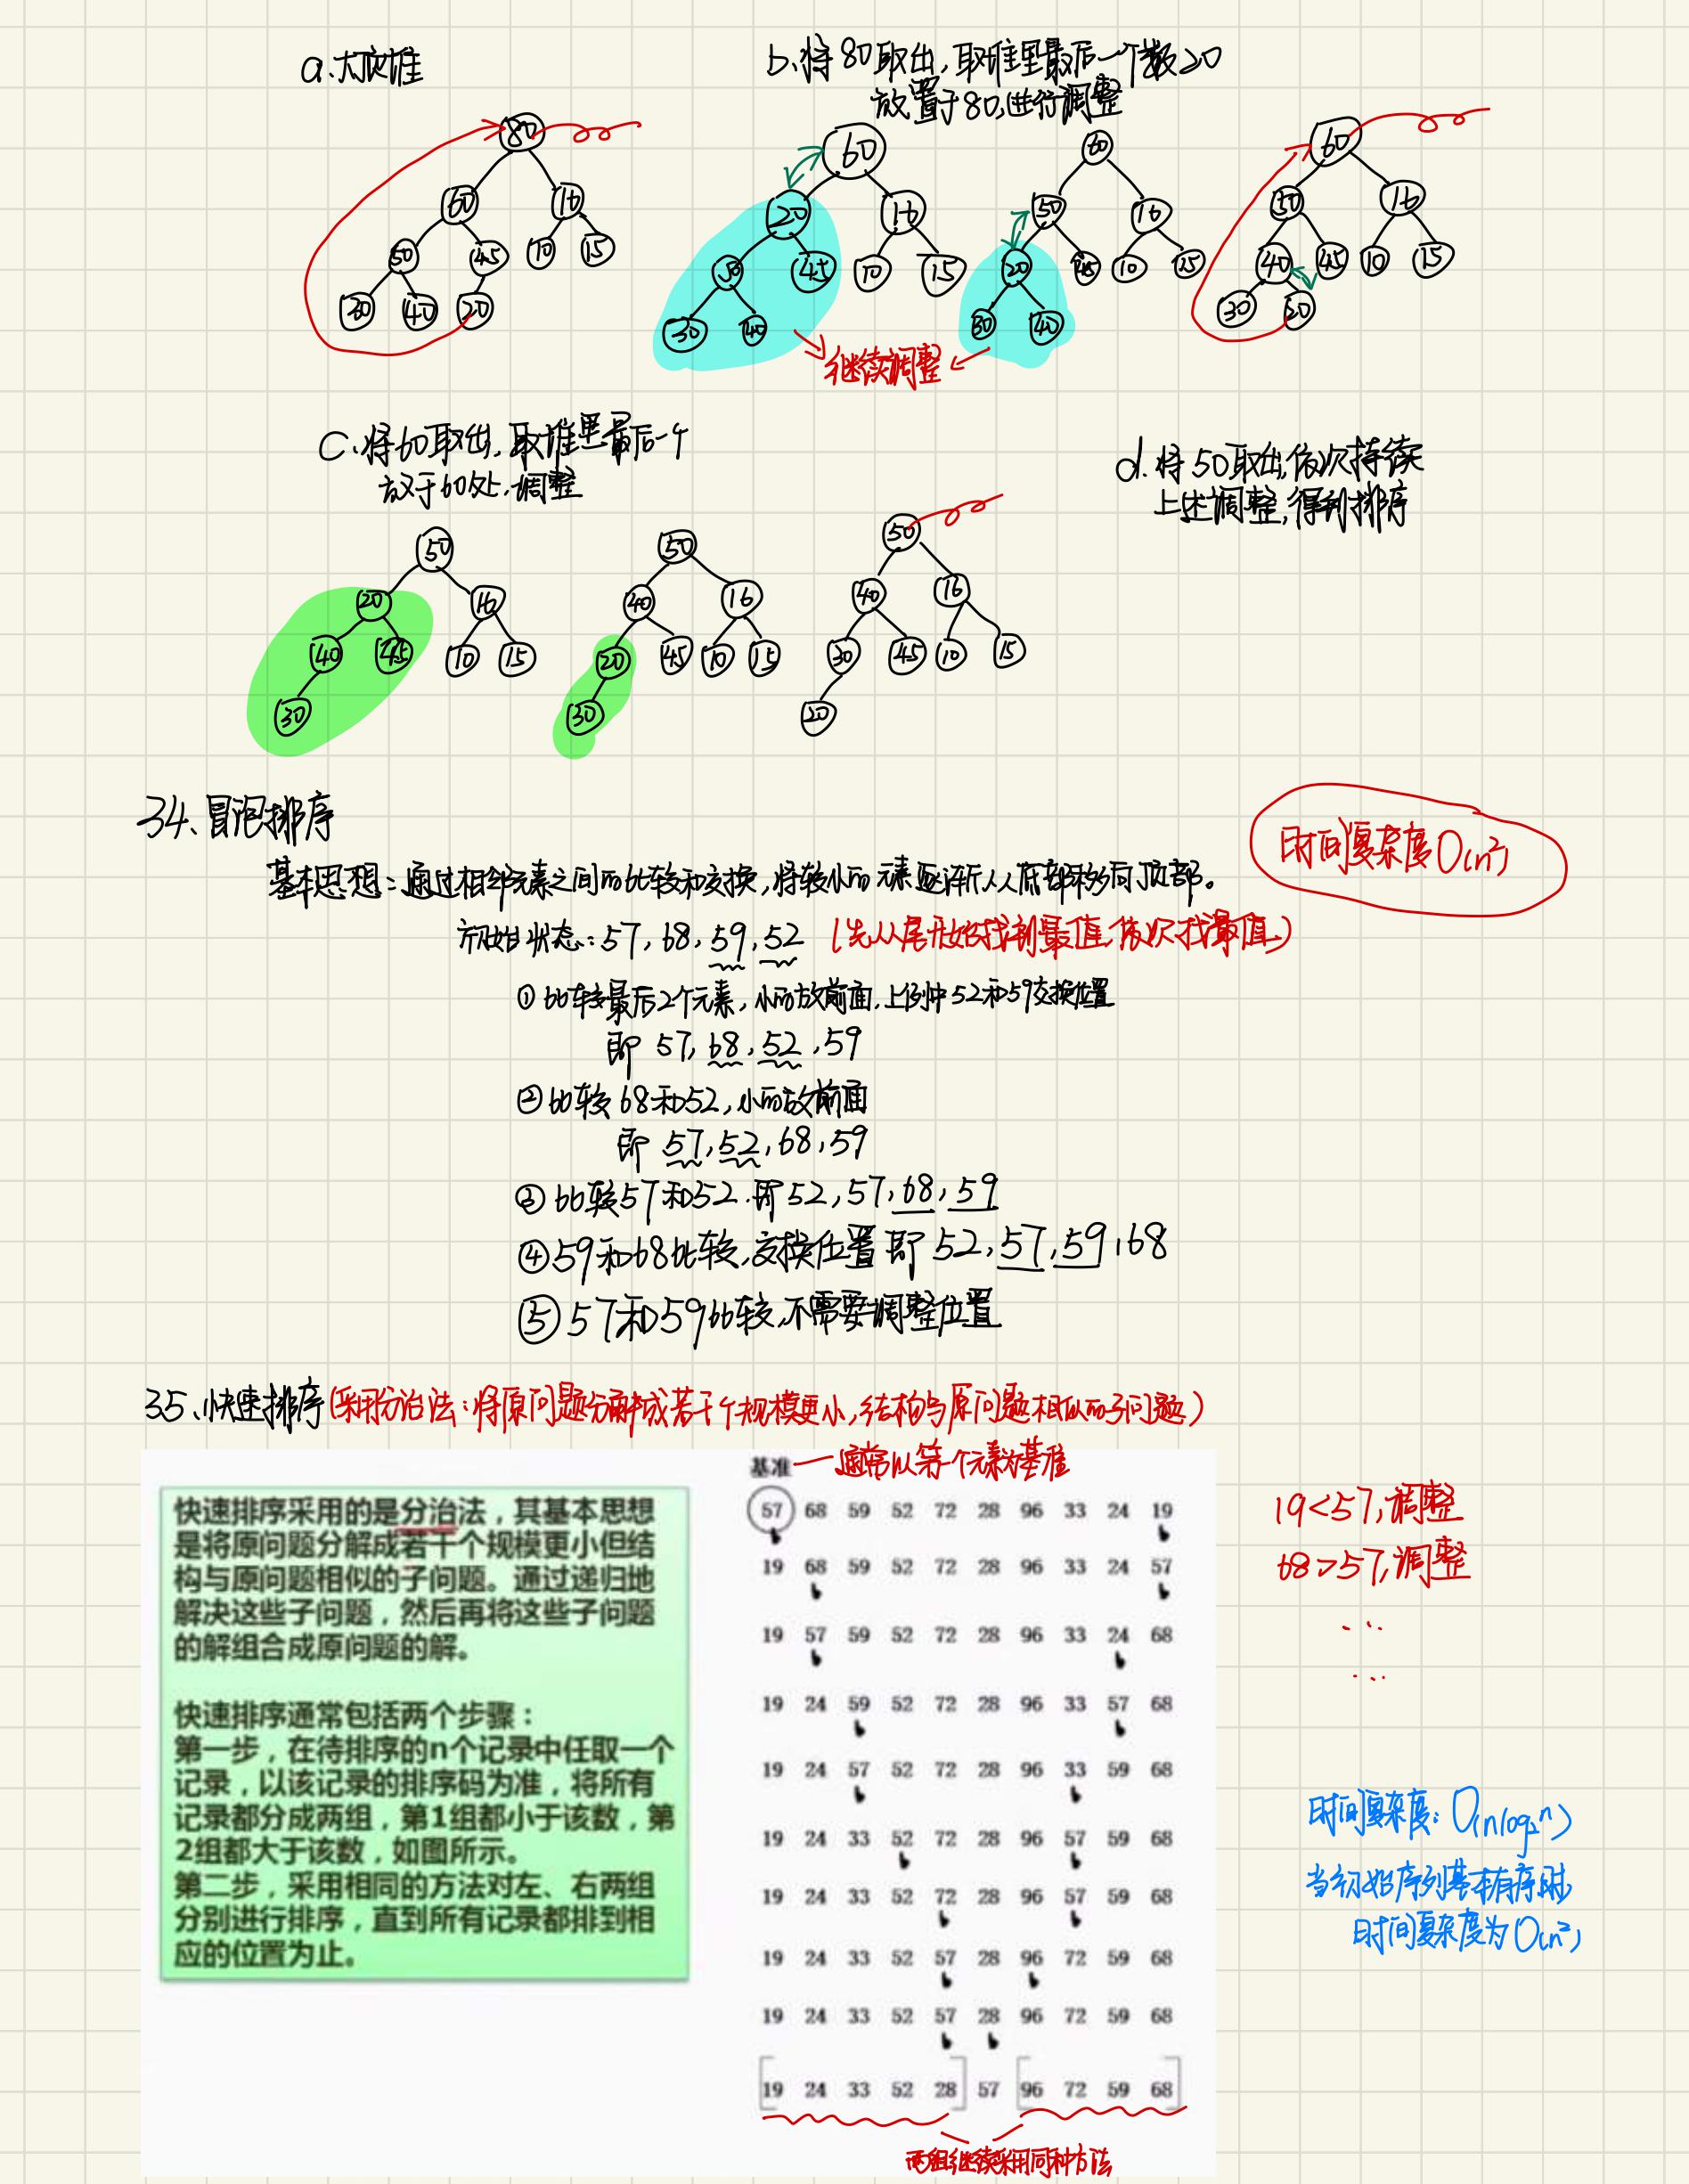 a.大顶堆
b.将80取出,取堆里最后一个数20
放置于80,进行调整
80
60 16
50 45 10 15
30 40 20
60
20 16
50 45 10 15
30 40
60
50 16
20 45 10 15
30 40
60
50 16
40 45 10 15
30 20
继续调整
c.将60取出,取堆里最后一个
放于60处,调整
d.将50取出,依次持续
上述调整,得到排序
50
20 16
40 45 10 15
30
50
40 16
20 45 10 15
30
50
40 16
30 45 10 15
20
34、冒泡排序
时间复杂度O(n²)
基本思想:通过相邻元素之间的比较和交换,将较小的元素逐渐从底部移向顶部。
初始状态:57,68,59,52 (先从尾开始找到最值,依次找最值)
①比较最后2个元素,小的放前面,上例中52和59交换位置
即 57,68,52,59
②比较68和52,小的放前面
即 57,52,68,59
③比较57和52.即52,57,68,59
④59和68比较,交换位置即 52,57,59,68
⑤57和59比较,不需要调整位置
35、快速排序(采用分治法:将原问题分解成若干个规模更小,结构与原问题相似的子问题)
快速排序采用的是分治法，其基本思想
是将原问题分解成若干个规模更小但结
构与原问题相似的子问题。通过递归地
解决这些子问题，然后再将这些子问题
的解组合成原问题的解。
快速排序通常包括两个步骤：
第一步，在待排序的n个记录中任取一个
记录，以该记录的排序码为准，将所有
记录都分成两组，第1组都小于该数，第
2组都大于该数，如图所示。
第二步，采用相同的方法对左、右两组
分别进行排序，直到所有记录都排到相
应的位置为止。
基准 通常以第一个元素为基准
57 68 59 52 72 28 96 33 24 19
19 68 59 52 72 28 96 33 24 57
19 57 59 52 72 28 96 33 24 68
19 24 59 52 72 28 96 33 57 68
19 24 57 52 72 28 96 33 59 68
19 24 33 52 72 28 96 57 59 68
19 24 33 52 72 28 96 57 59 68
19 24 33 52 57 28 96 72 59 68
19 24 33 52 57 28 96 72 59 68
[19 24 33 52 28] 57 [96 72 59 68]
两组继续采用同种方法
19<57,调整
68>57,调整
...
...
时间复杂度:O(nlog₂n)
当初始序列基本有序时,
时间复杂度为O(n²)